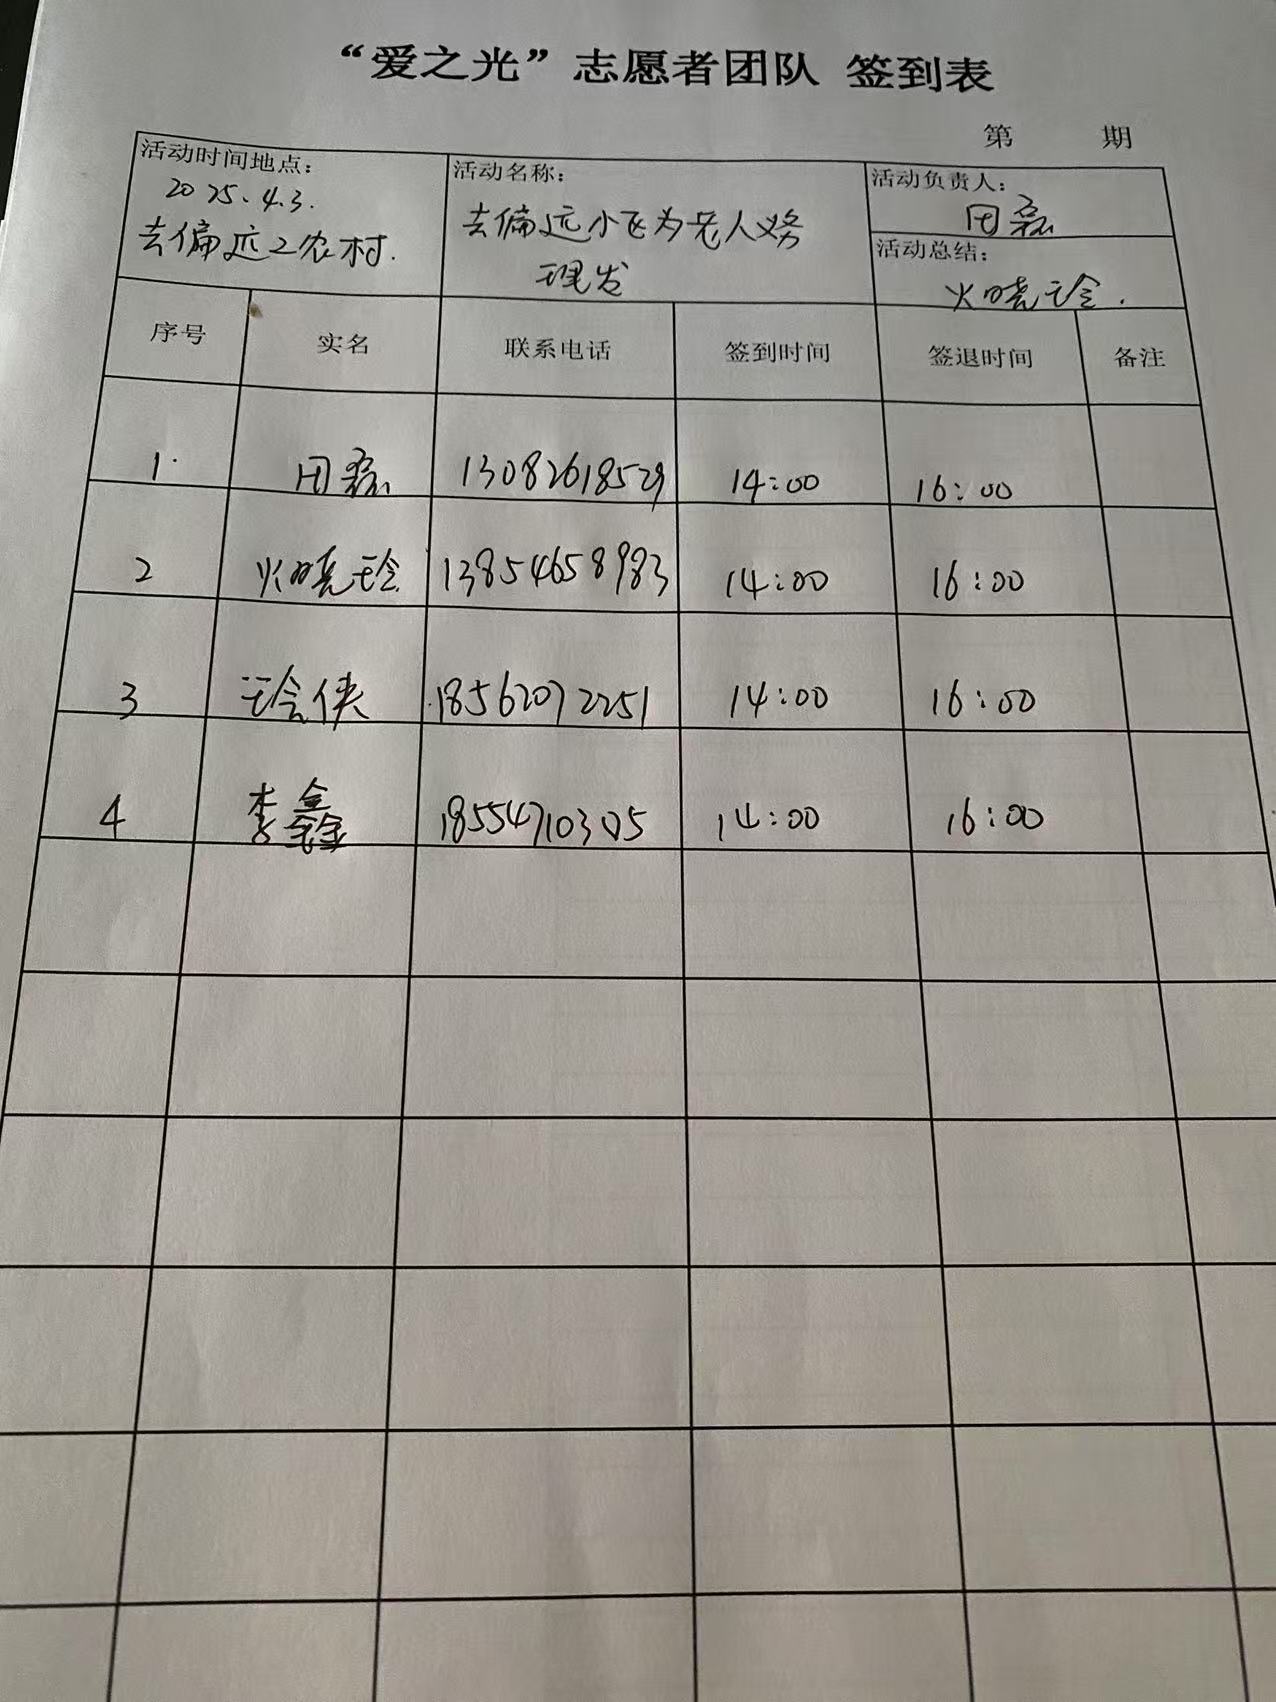 “爱之光”志愿者团队 签到表
第 期
活动时间地点：
2025.4.3.
去偏远之农村.
活动名称：
去偏远小飞为老人义务
理发
活动负责人：
田磊
活动总结：
火晓玲.
序号 实名 联系电话 签到时间 签退时间 备注
1. 田磊 13082618529 14:00 16:00
2 火晓玲 13854658983 14:00 16:00
3 侠 18562072251 14:00 16:00
4 李鑫 18554710305 14:00 16:00